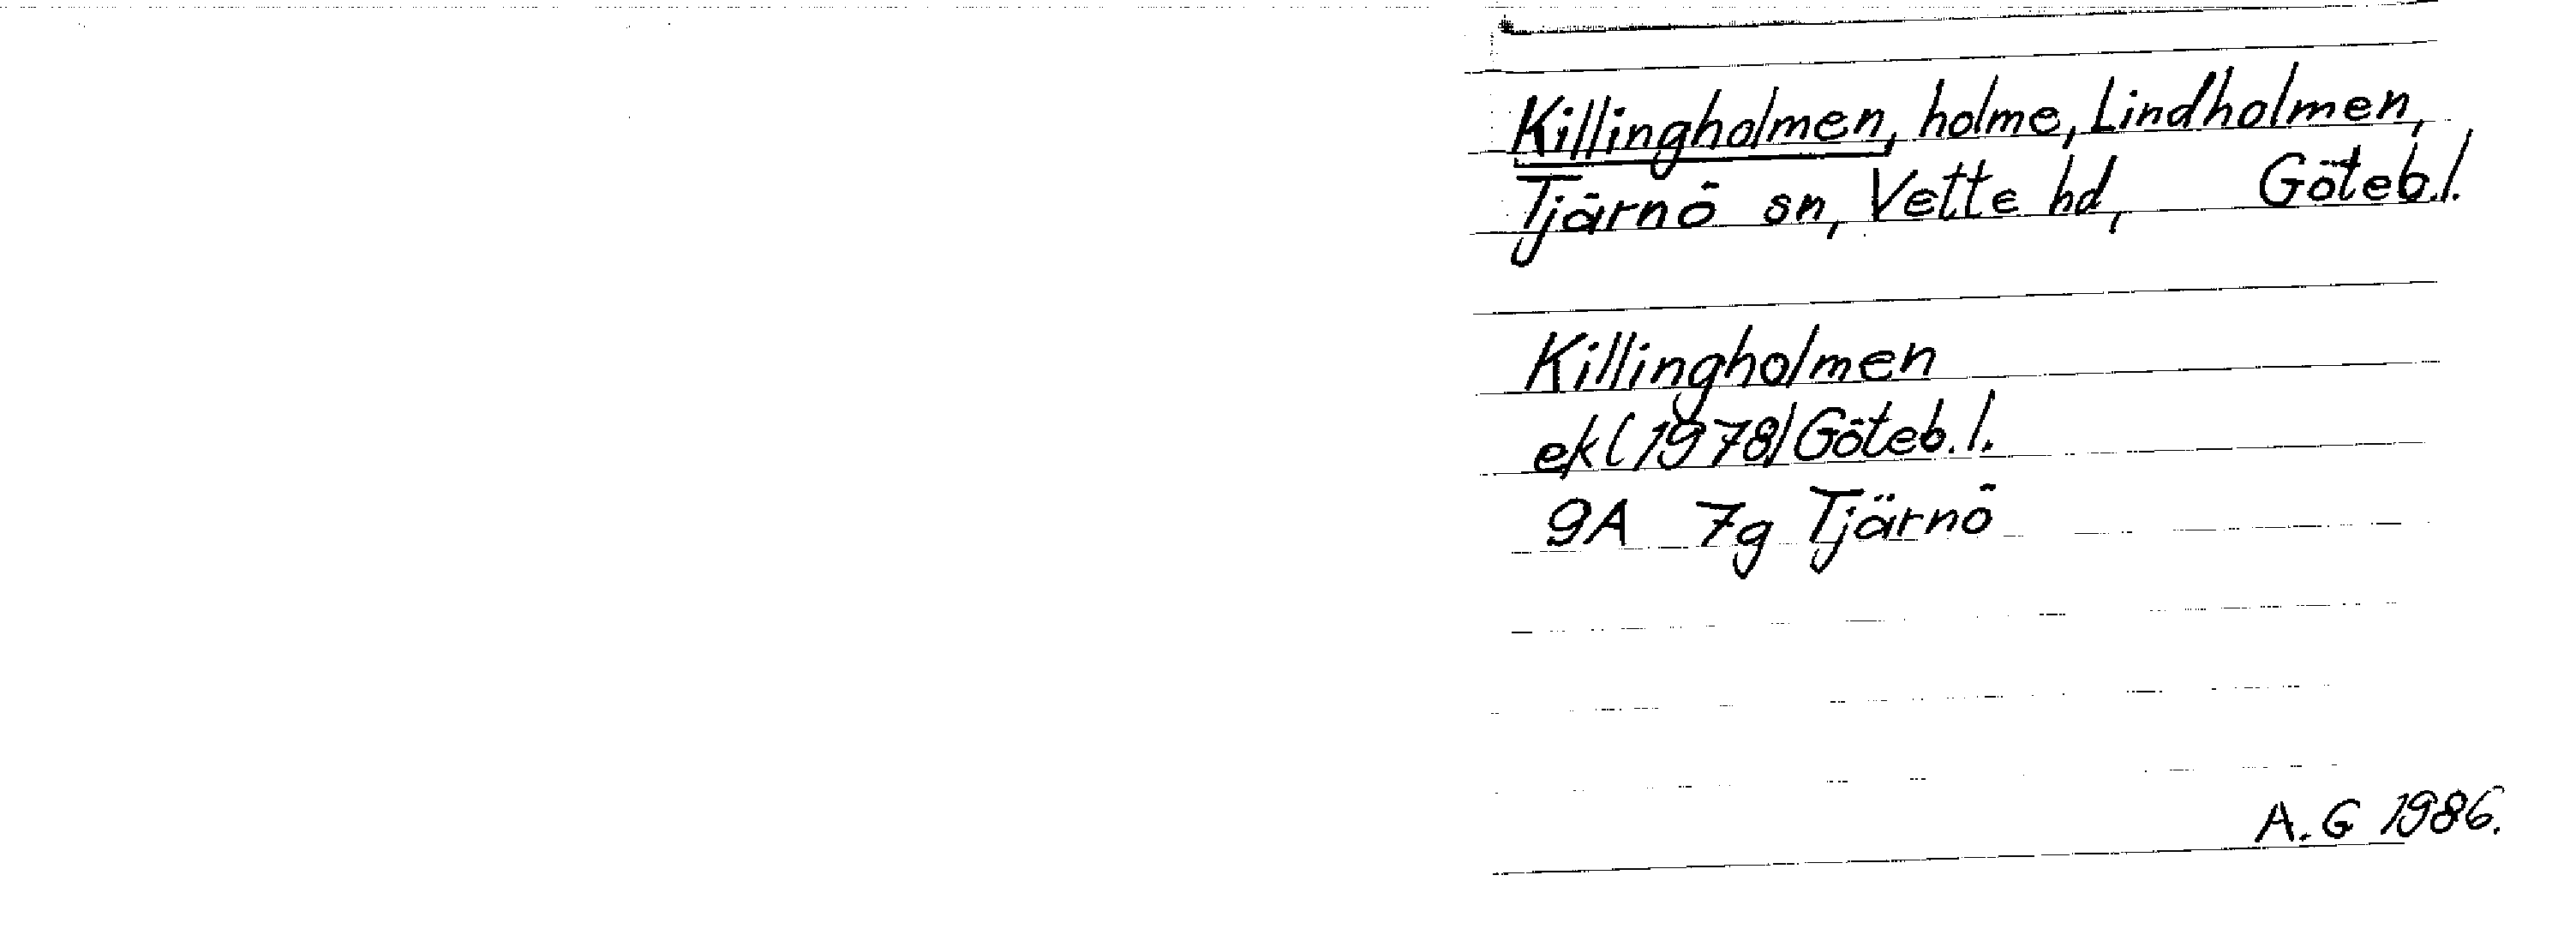 Killingholmen, holme, Lindholmen,
Tjärnö sn, Vette hd, Göteb.l.
Killingholmen
ekl (1978) Göteb. l.
9A 7g Tjärnö
A. G 1986.